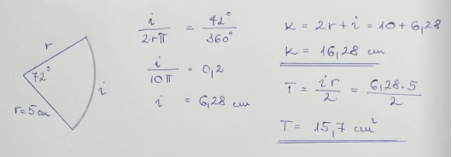 r
72°
i
r=5cm
i/2rπ = 72°/360°
i/10π = 0,2
i = 6,28 cm
K = 2r+i = 10+6,28
K = 16,28 cm
T = ir/2 = 6,28·5/2
T = 15,7 cm²